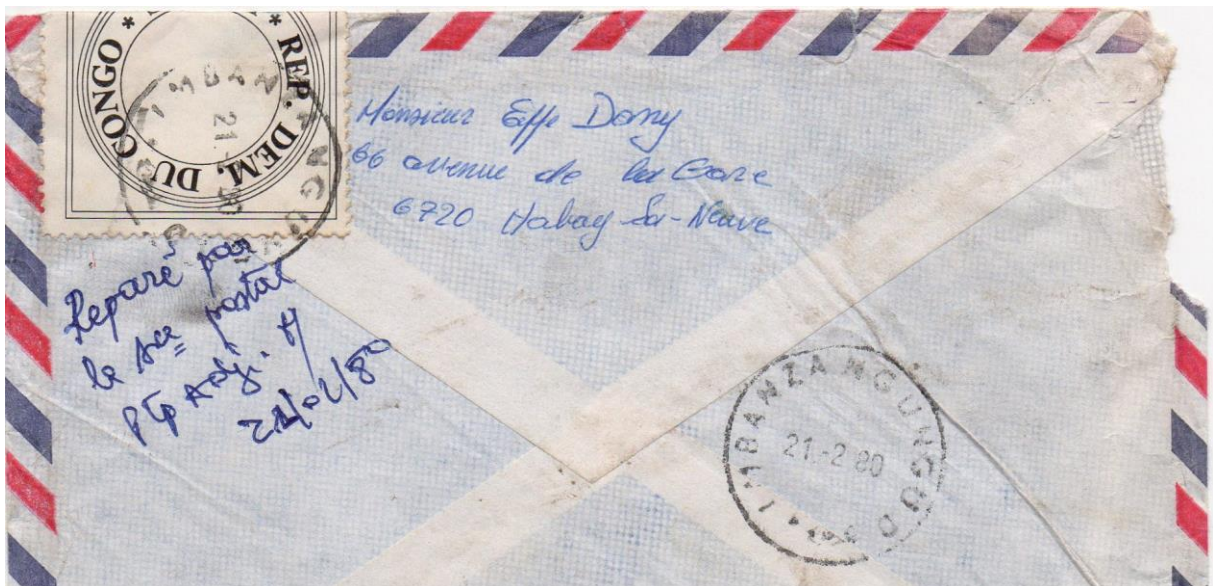 * REP. DEM. DU CONGO *
MBANZA NGUNGU
21
80
Monsieur Effe Dony
66 avenue de la Gare
6720 Habay La-Neuve
Reparé par
le sce postal
Ptp Adj.
21/02/80
1 MBANZA NGUNGU D
21.-2 80